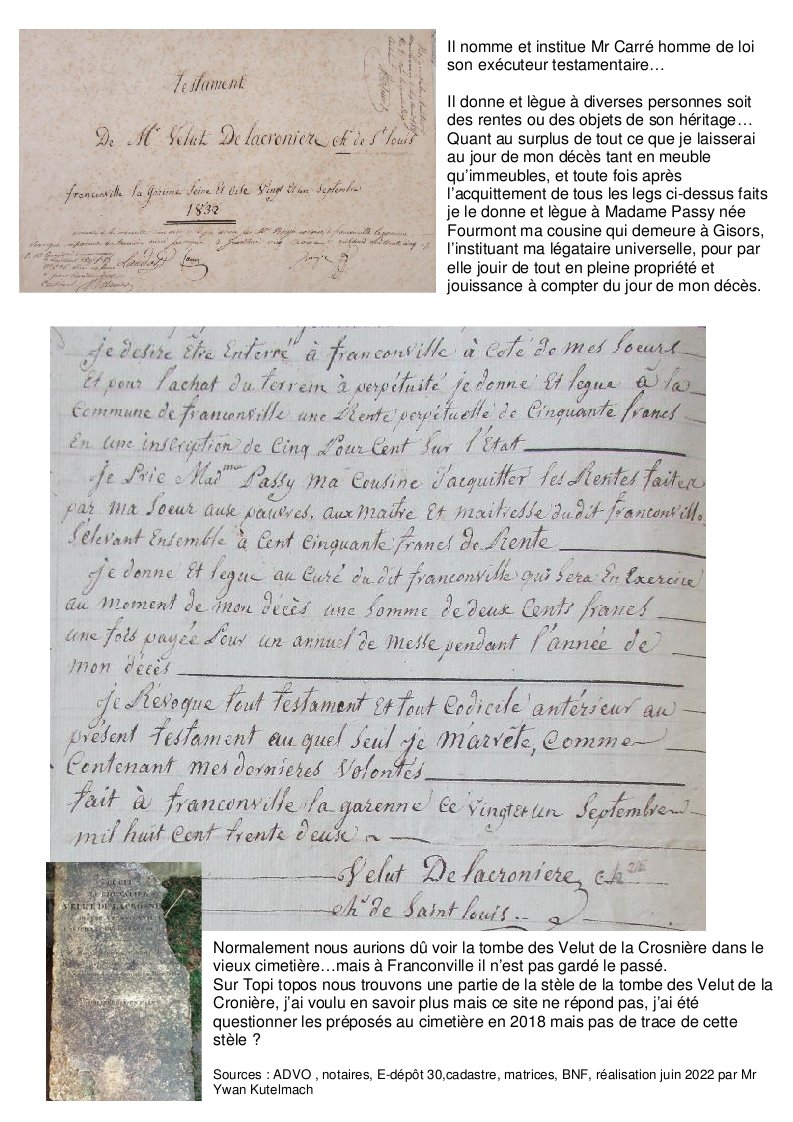 Testament
De Mr Velut Delacroniere chr de St Louis
franconville la garenne Seine et Oise Vingt et un Septembre
1832
Il nomme et institue Mr Carré homme de loi
son exécuteur testamentaire…
Il donne et lègue à diverses personnes soit
des rentes ou des objets de son héritage…
Quant au surplus de tout ce que je laisserai
au jour de mon décès tant en meuble
qu’immeubles, et toute fois après
l’acquittement de tous les legs ci-dessus faits
je le donne et lègue à Madame Passy née
Fourmont ma cousine qui demeure à Gisors,
l’instituant ma légataire universelle, pour par
elle jouir de tout en pleine propriété et
jouissance à compter du jour de mon décès.
je desire Être Enterré à franconville à Coté de mes Soeurs
Et pour l'achat du terrein à perpétuité je donne Et legue à la
Commune de franconville une Rente perpétuelle de Cinquante francs
En une inscription de Cinq Pour Cent Sur l'Etat
je Prie Madme Passy ma Cousine d'acquitter les Rentes faites
par ma Soeur aux pauvres, aux maitre Et maitresse du dit franconville
S'élevant Ensemble à Cent Cinquante francs de Rente
je donne Et legue au Curé du dit franconville qui Sera En Exercice
au moment de mon décès une Somme de deux Cents francs
une fois payée Pour un annuel de Messe pendant l'année de
mon décès
je Révoque tout testament Et tout Codicile antérieur au
présent testament au quel Seul je M'arrête, Comme
Contenant mes dernieres Volontés
fait à franconville la garenne Ce Vingt et un Septembre
mil huit Cent trente deux
Velut Delacroniere chr
chr de Saint Louis
VELUT DE LACROSNI
Normalement nous aurions dû voir la tombe des Velut de la Crosnière dans le
vieux cimetière…mais à Franconville il n’est pas gardé le passé.
Sur Topi topos nous trouvons une partie de la stèle de la tombe des Velut de la
Cronière, j’ai voulu en savoir plus mais ce site ne répond pas, j’ai été
questionner les préposés au cimetière en 2018 mais pas de trace de cette
stèle ?
Sources : ADVO , notaires, E-dépôt 30,cadastre, matrices, BNF, réalisation juin 2022 par Mr
Ywan Kutelmach